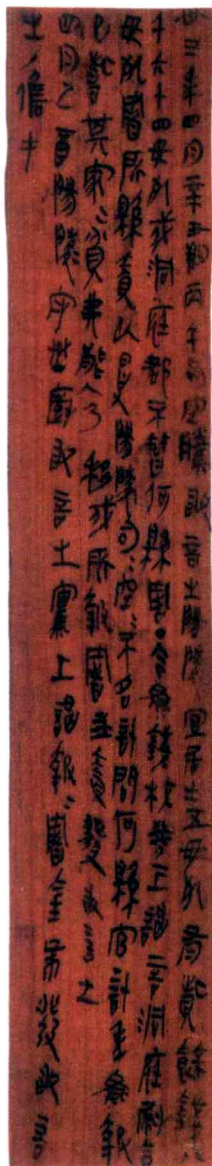 卅三年四月辛丑朔丙午司空騰敢言之陽陵宜居士五毋死有貲餘錢八
千六十四毋死戍洞庭郡不智何縣署·今為錢校券一上謁言洞庭尉令
毋死署所縣責以受陽陵司=空=不名計問何縣官計年為報
已訾其家=貧弗能入乃移戍所報署主責發敢言之
四月己酉陽陵守丞廚敢言之寫上謁報=署金布發敢言
之/儋手